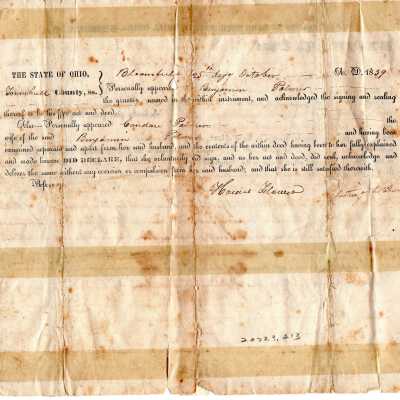 THE STATE OF OHIO, Bloomfield 25th day October A. D. 1839
Trumbull County, ss. Personally appeared Benjamin
the grantor named in the within instrument, and acknowledged the signing and sealing
thereof to be his act and deed.
Also—Personally appeared Candace the
wife of the said Benjamin and having been
examined separate and apart from her said husband, and the contents of the within deed having been to her fully explained
and made known DID DECLARE, that she voluntarily did sign, and as her act and deed, did seal, acknowledge and
deliver the same without any coercion or compulsion from her said husband; and that she is still satisfied therewith.
Before me,
Horace Flower
20729.213